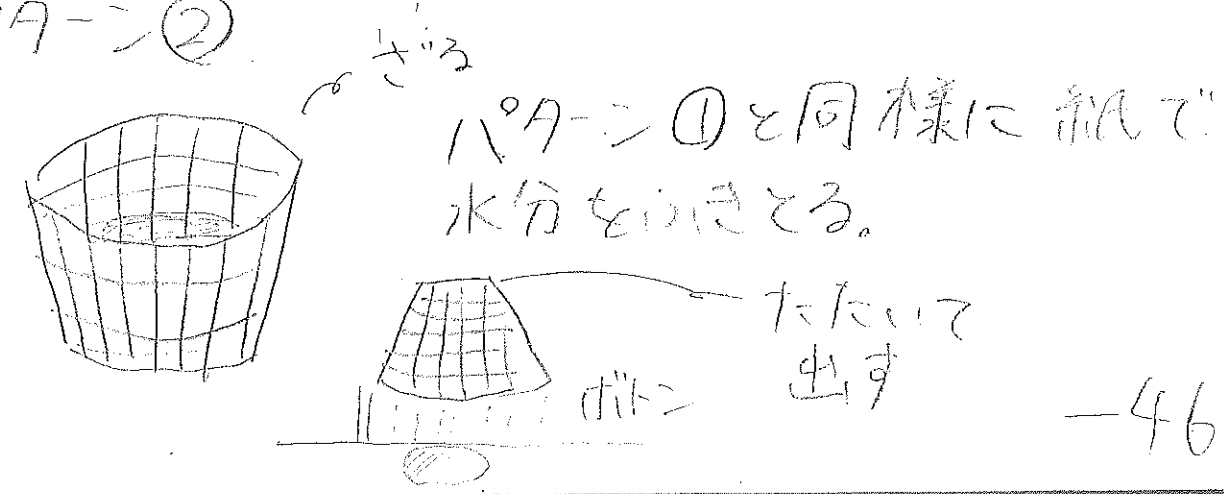 パターン②
ざる
パターン①と同様に紙で
水分をふきとる。
たたいて
出す
ボトン
-46